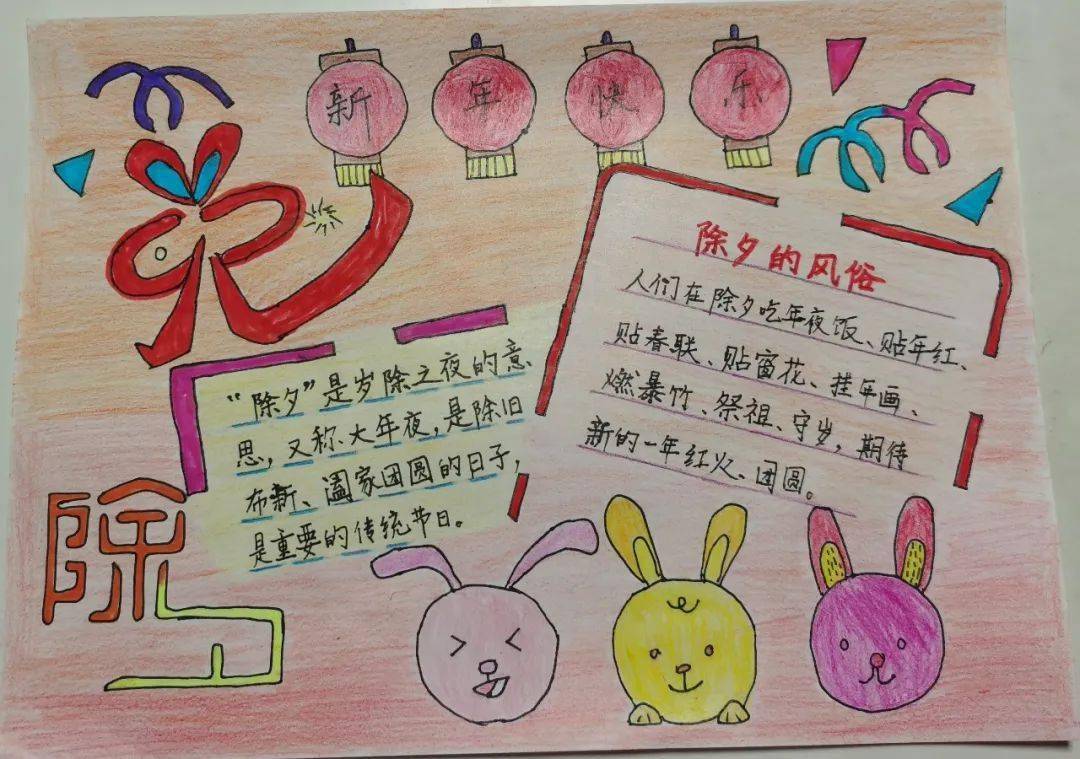 新年快乐
除夕的风俗
人们在除夕吃年夜饭、贴年红、
贴春联、贴窗花、挂年画、
燃暴竹、祭祖、守岁，期待
新的一年红火、团圆。
“除夕”是岁除之夜的意
思，又称大年夜，是除旧
布新、阖家团圆的日子，
是重要的传统节日。
除夕